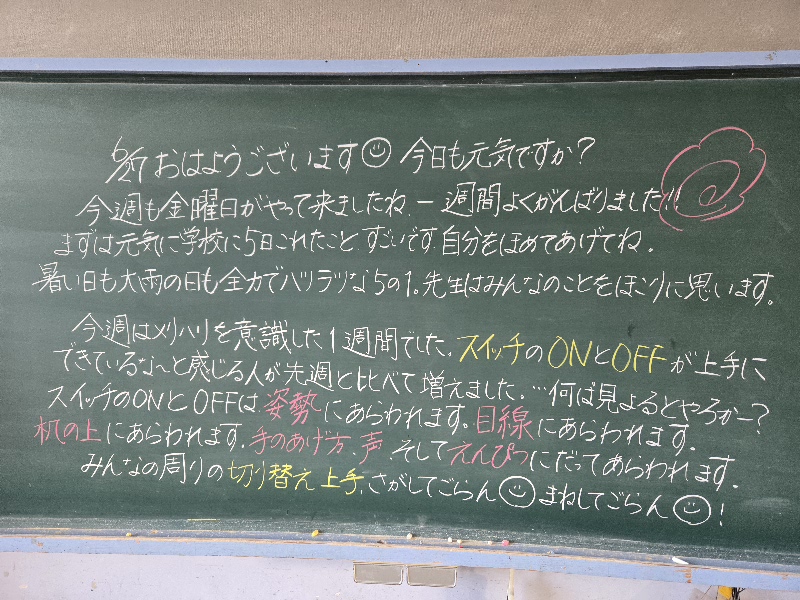 6/27 おはようございます 今日も元気ですか?
今週も金曜日がやって来ましたね。一週間よくがんばりました!!
まずは元気に学校に5日これたこと、すごいです。自分をほめてあげてね。
暑い日も大雨の日も全力でハツラツな5の1。先生はみんなのことをほこりに思います。
今週はメリハリを意識した1週間でした。スイッチのONとOFFが上手に
できているな〜と感じる人が先週と比べて増えました。…何ば見よるとやろかー?
スイッチのONとOFFは姿勢にあらわれます。目線にあらわれます。
机の上にあらわれます。手のあげ方、声、そしてえんぴつにだってあらわれます。
みんなの周りの切り替え上手、さがしてごらん まねしてごらん!